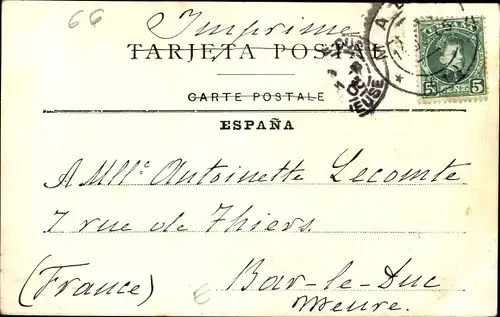 66
Imprimé
TARJETA POSTAL
CARTE POSTALE
ESPAÑA
MEUSE
5 5
A Mlle Antoinette Lecomte
7 rue de Thiers
(France) Bar-le-Duc
Meuse.